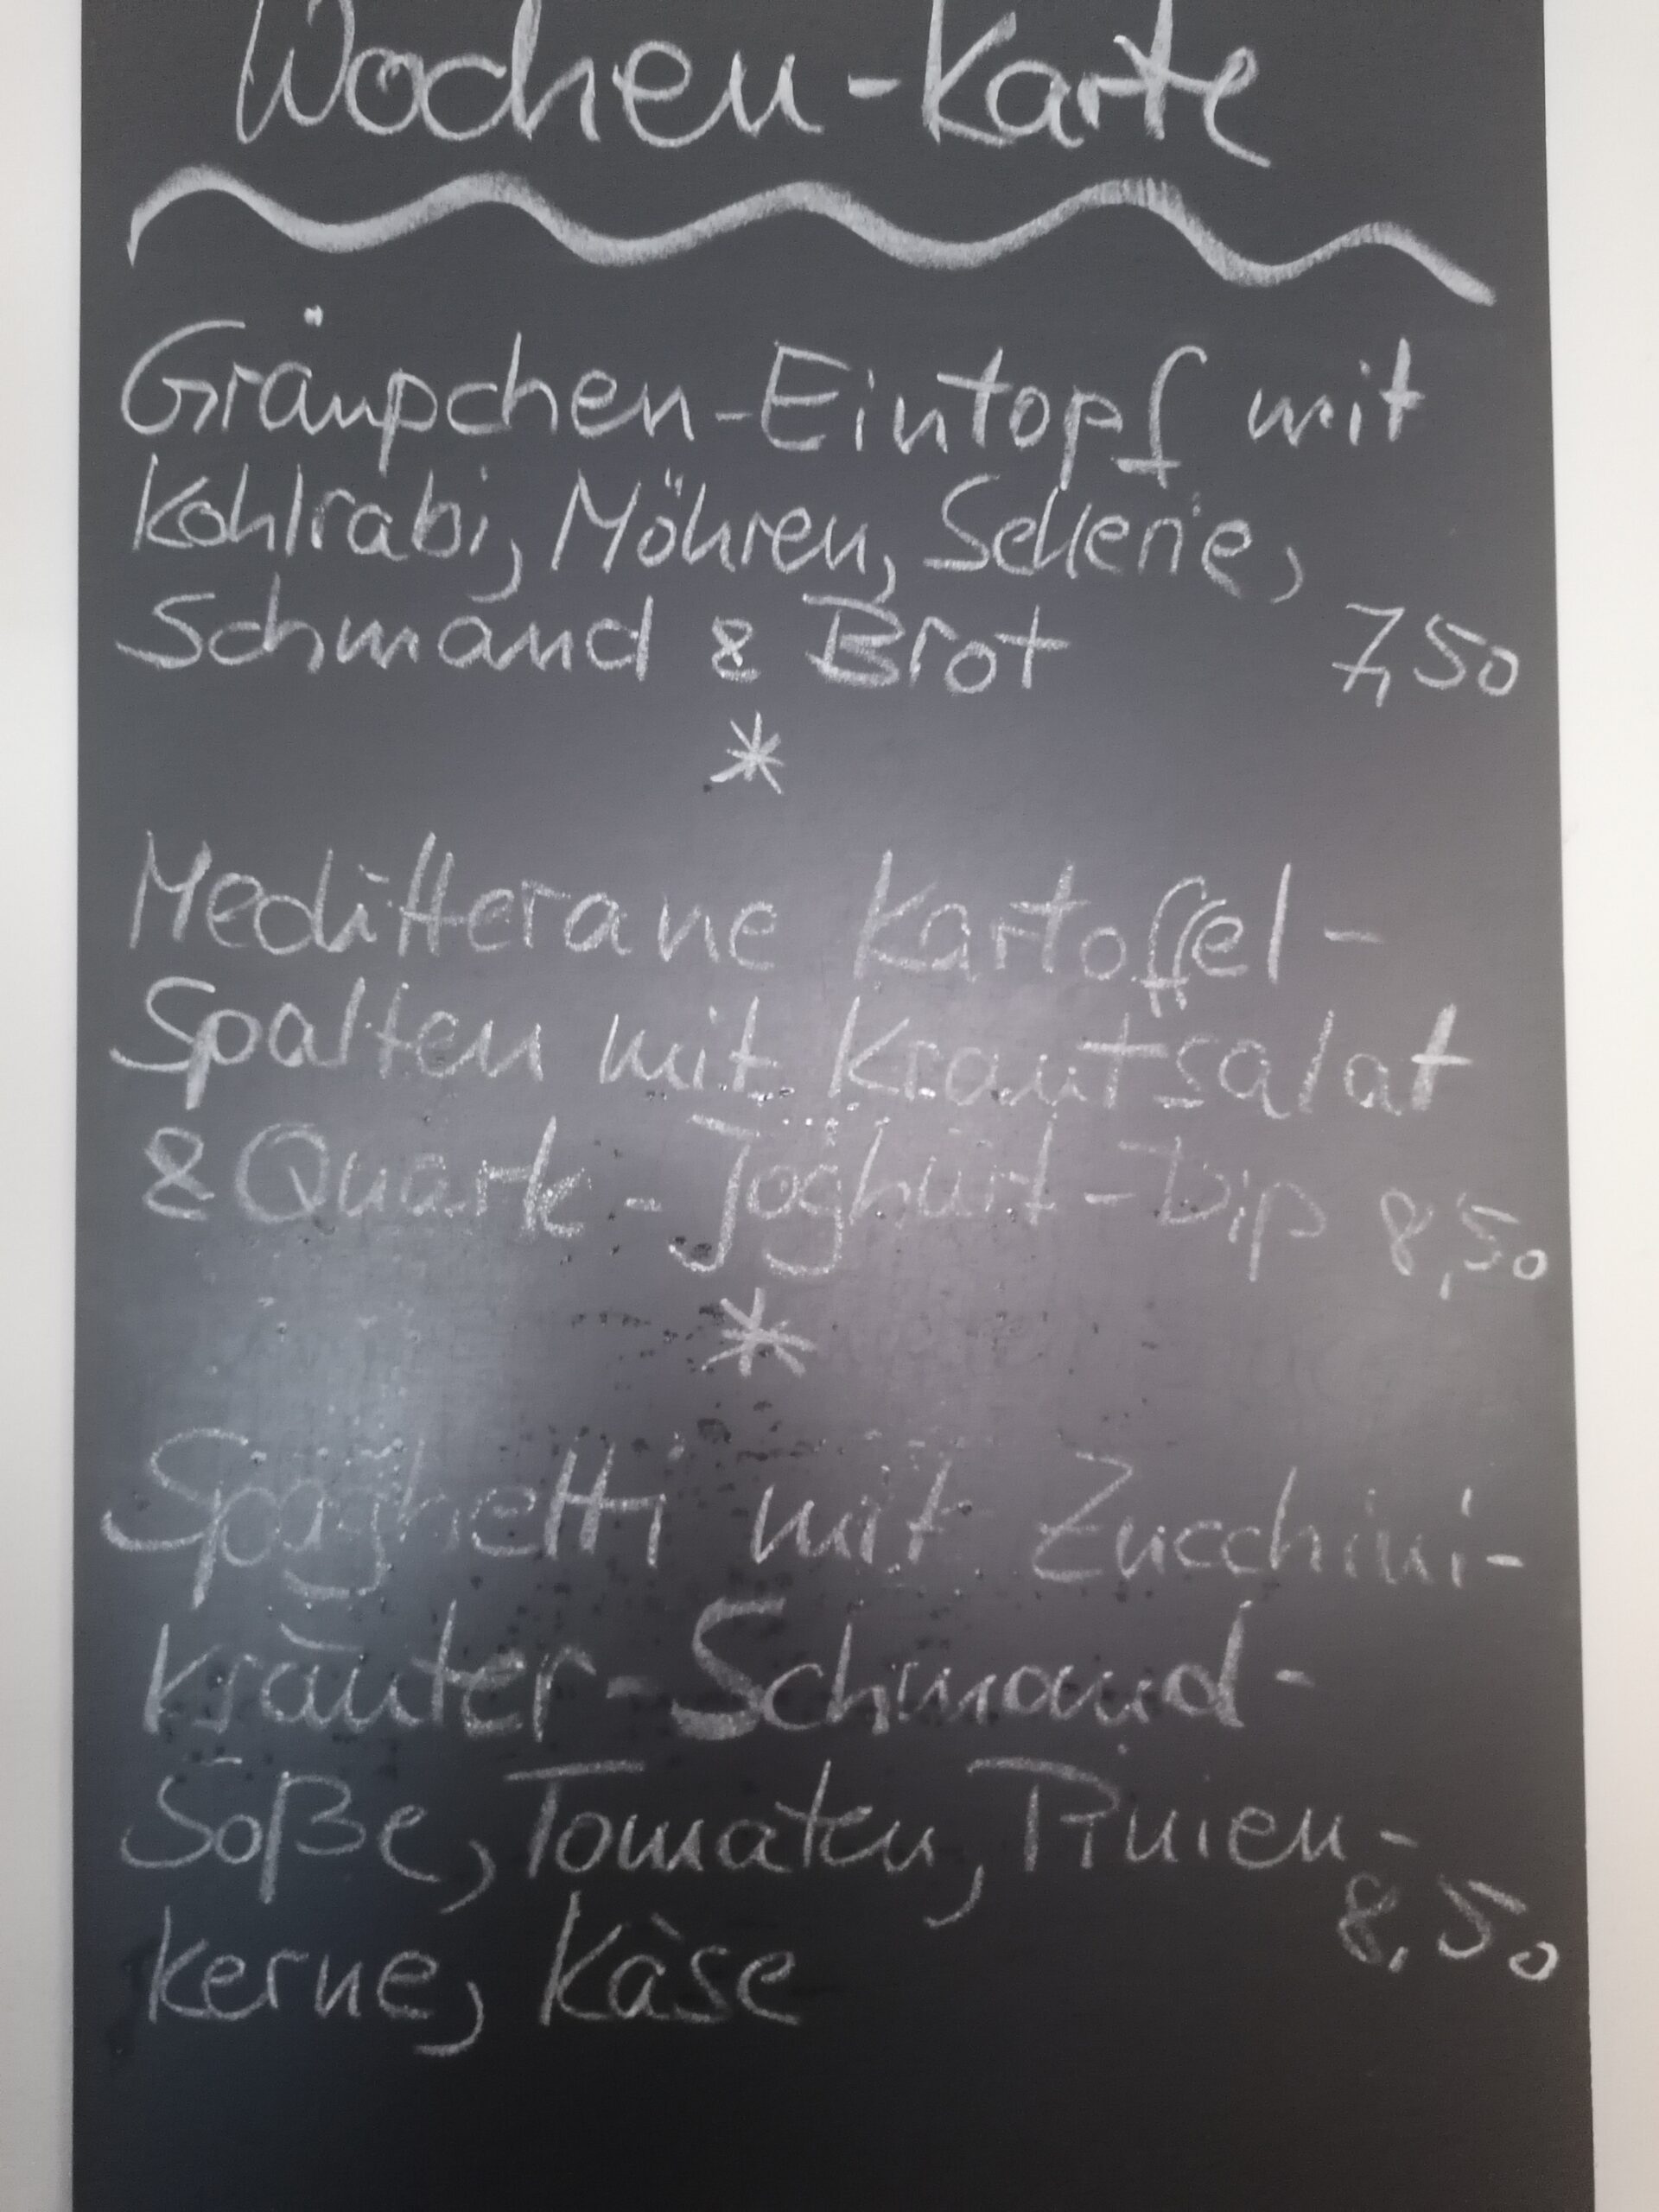 Wochen-Karte
Gräupchen-Eintopf mit
Kohlrabi, Möhren, Sellerie,
Schmand & Brot 7,50
*
Meditterane Kartoffel-
Spalten mit Krautsalat
& Quark-Joghurt-Dip 8,50
*
Spaghetti mit Zucchini-
kräuter-Schmand-
Soße, Tomaten, Pinien-
kerne, Käse 8,50